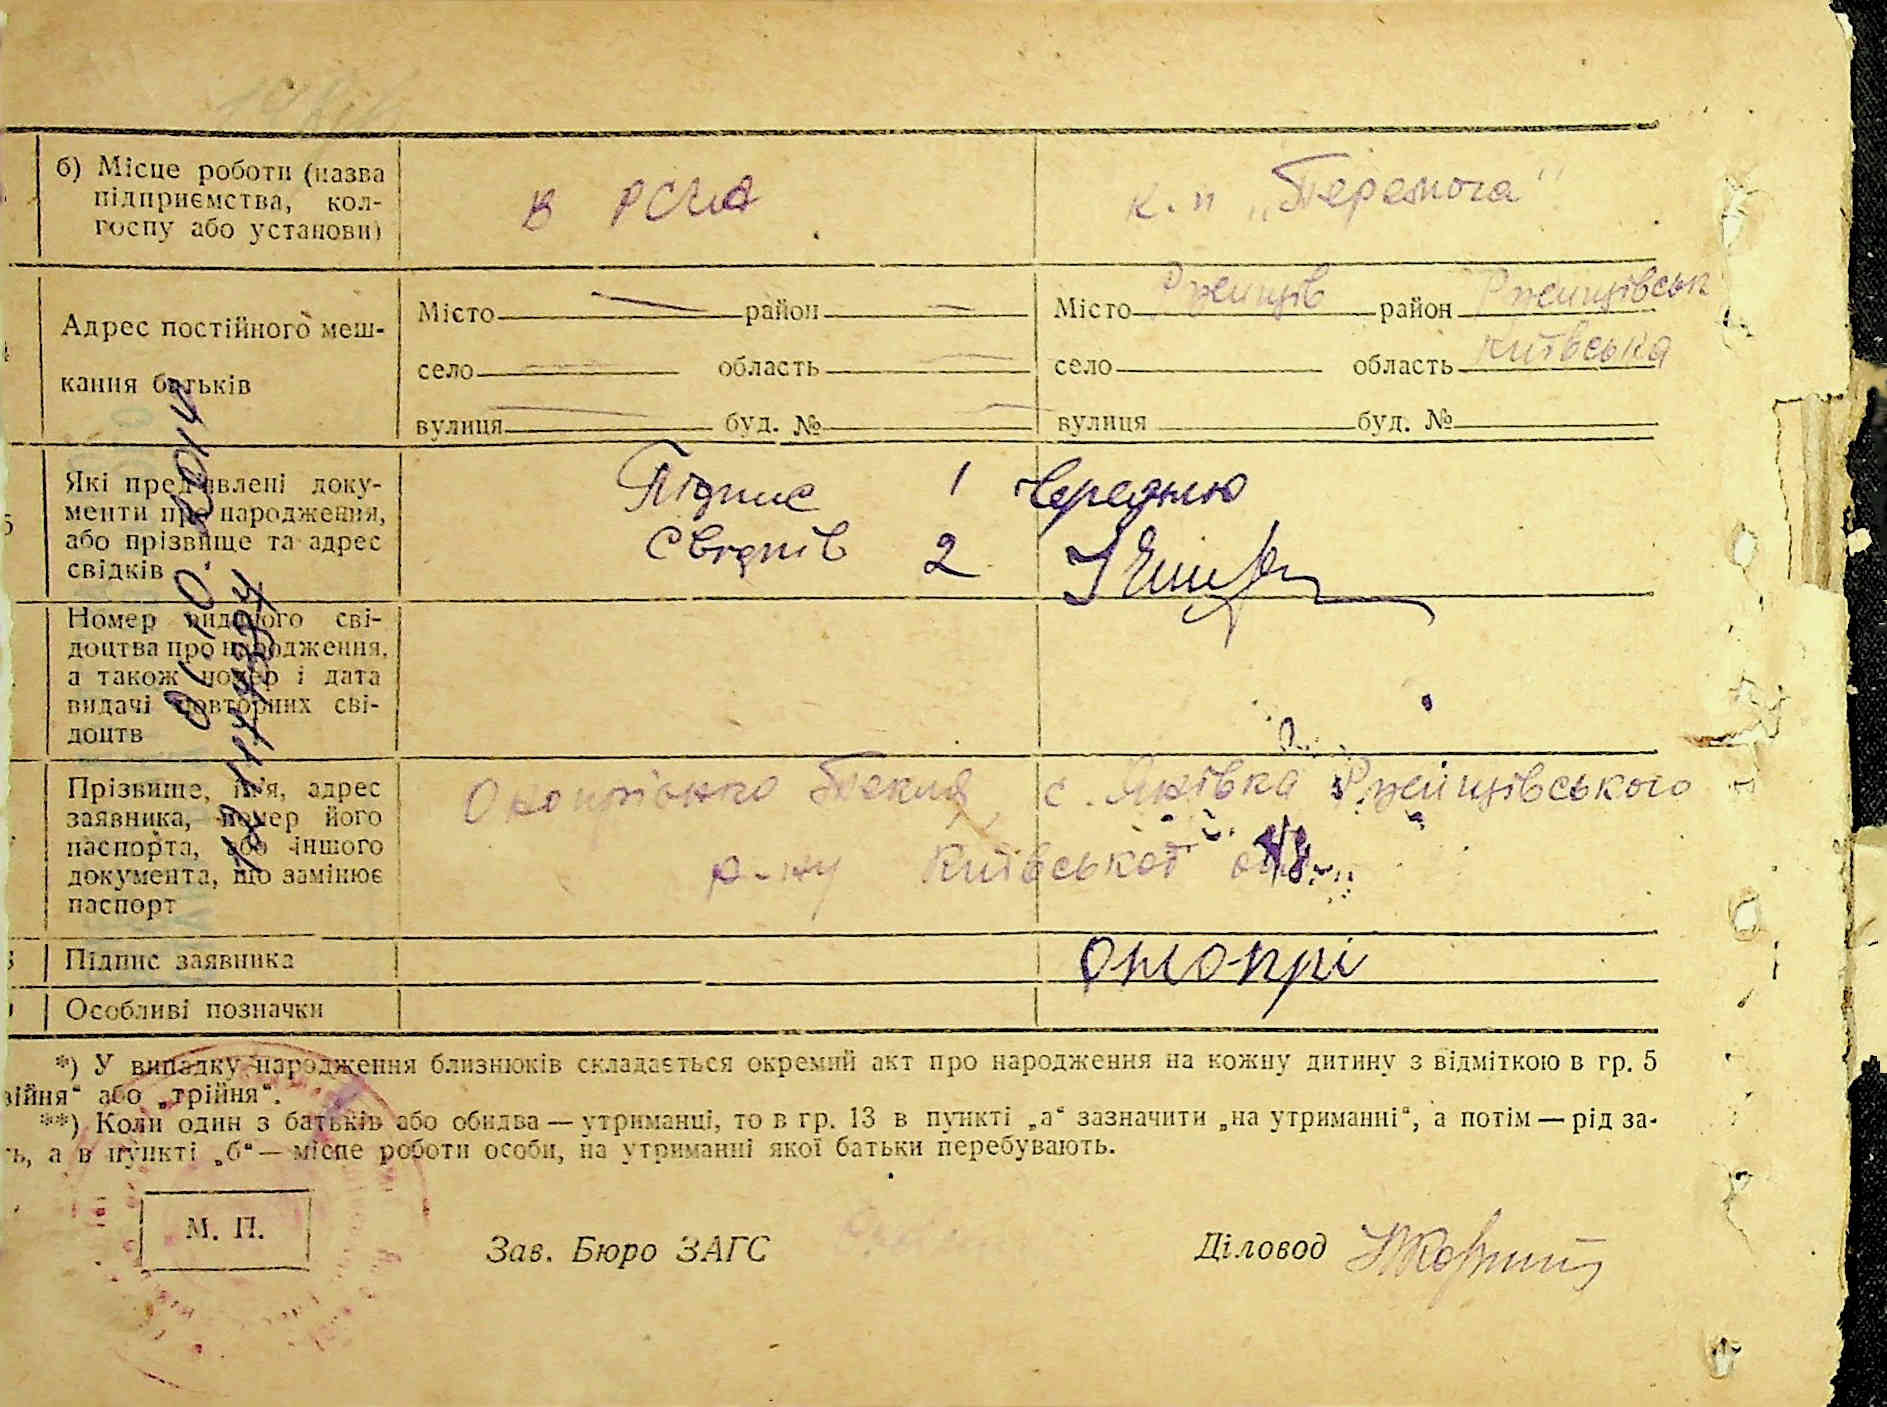 б) Місце роботи (назва
підприємства, кол-
госпу або установи)
в РСЧА
к.п „Перемога"
Адрес постійного меш-
кання батьків
Місто район
село область
вулиця буд. №
Місто Ржищів район Ржищівськ
село область Київська
вулиця буд. №
Які пред'явлені доку-
менти про народження,
або прізвище та адрес
свідків
Підпис 1 Середню
свідків 2
Номер виданого сві-
доцтва про народження,
а також номер і дата
видачі повторних сві-
доцтв
Прізвище, ім'я, адрес
заявника, номер його
паспорта, або іншого
документа, що замінює
паспорт
Онопрієнко Текля с. Янівка Ржищівського
р-ну Київської
Підпис заявника
онопрі
Особливі позначки
*) У випадку народження близнюків складається окремий акт про народження на кожну дитину з відміткою в гр. 5
війня“ або „трійня“.
**) Коли один з батьків або обидва — утриманці, то в гр. 13 в пункті „а“ зазначити „на утриманні“, а потім — рід за-
ть, а в пункті „б“ — місце роботи особи, на утриманні якої батьки перебувають.
М. П.
Зав. Бюро ЗАГС
Діловод